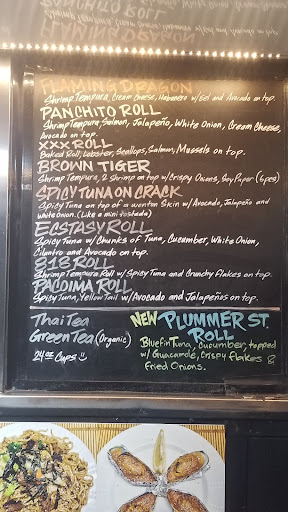 FLAMING DRAGON
Shrimp Tempura, Cream Cheese, Habanero w/eel and Avocado on top.
PANCHITO ROLL
Shrimp Tempura, Salmon, Jalapeño, White Onion, Cream Cheese,
Avocado on top.
XXX ROLL
Baked Roll, Lobster, Scallops, Salmon, Mussels on top.
BROWN TIGER
Shrimp Tempura, 2 Shrimp on top w/crispy Onions, Soy Paper (6pcs)
SPICY TUNA ON CRACK
Spicy Tuna on top of a wonton Skin w/Avocado, Jalapeño and
white onion. (Like a mini tostada)
ECSTASY ROLL
Spicy Tuna w/ Chunks of Tuna, Cucumber, White Onion,
Cilantro and Avocado on top.
818 ROLL
Shrimp Tempura Roll w/ Spicy Tuna and Crunchy flakes on top.
PACOIMA ROLL
Spicy Tuna, Yellow Tail w/Avocado and Jalapeños on top.
Thai Tea
Green Tea (Organic)
24oz Cups
NEW PLUMMER ST.
ROLL
Bluefin Tuna, Cucumber, topped
w/ Guacamole, Crispy flakes &
Fried Onions.